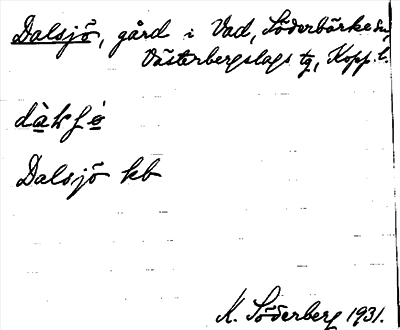 Dalsjö, gård i Vad, Söderbärke sn,
Västerbergslags tg, Kopp. l.
Dalsjö kb
K. Söderberg 1931.